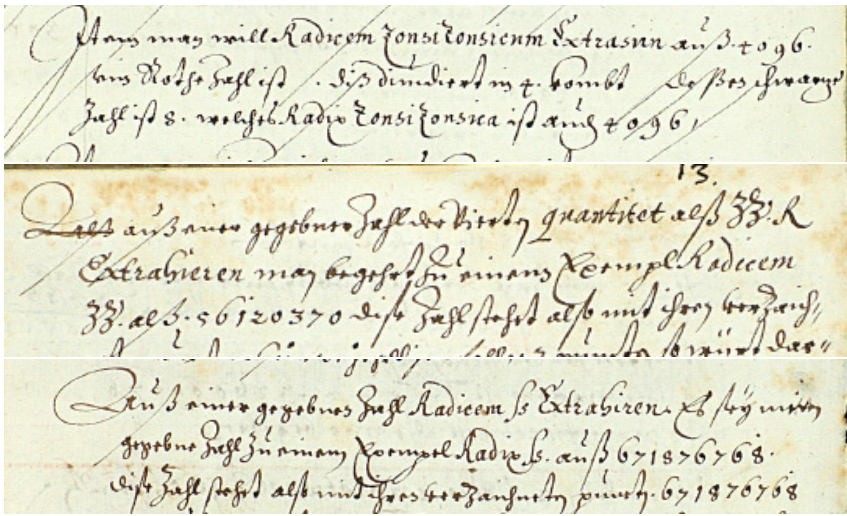 Item man will Radicem Zonsizonsicum Extrahirn auß 4096.
ein Rothe Zahl ist . diß dividiert in 4. kombt deßen schwarze
Zahl ist 8. welches Radix Zonsizonsica ist auß 4096,
13.
auß einer gegebnen Zahl der Vierten quantitet alß ZZ. R
Extrahieren man begehrt zu einem Exempl Radicem
ZZ. alß. 56120370 dise Zahl stehet also mit ihren verzaich-
so würt dar-
Auß einer gegebnen Zahl Radicem ß Extrahiren. Es sey mein
gegebne Zahl zu einem Exempel Radix ß. auß 671876768.
dise Zahl stehet also mit ihren verzaichneten punctn. 671876768